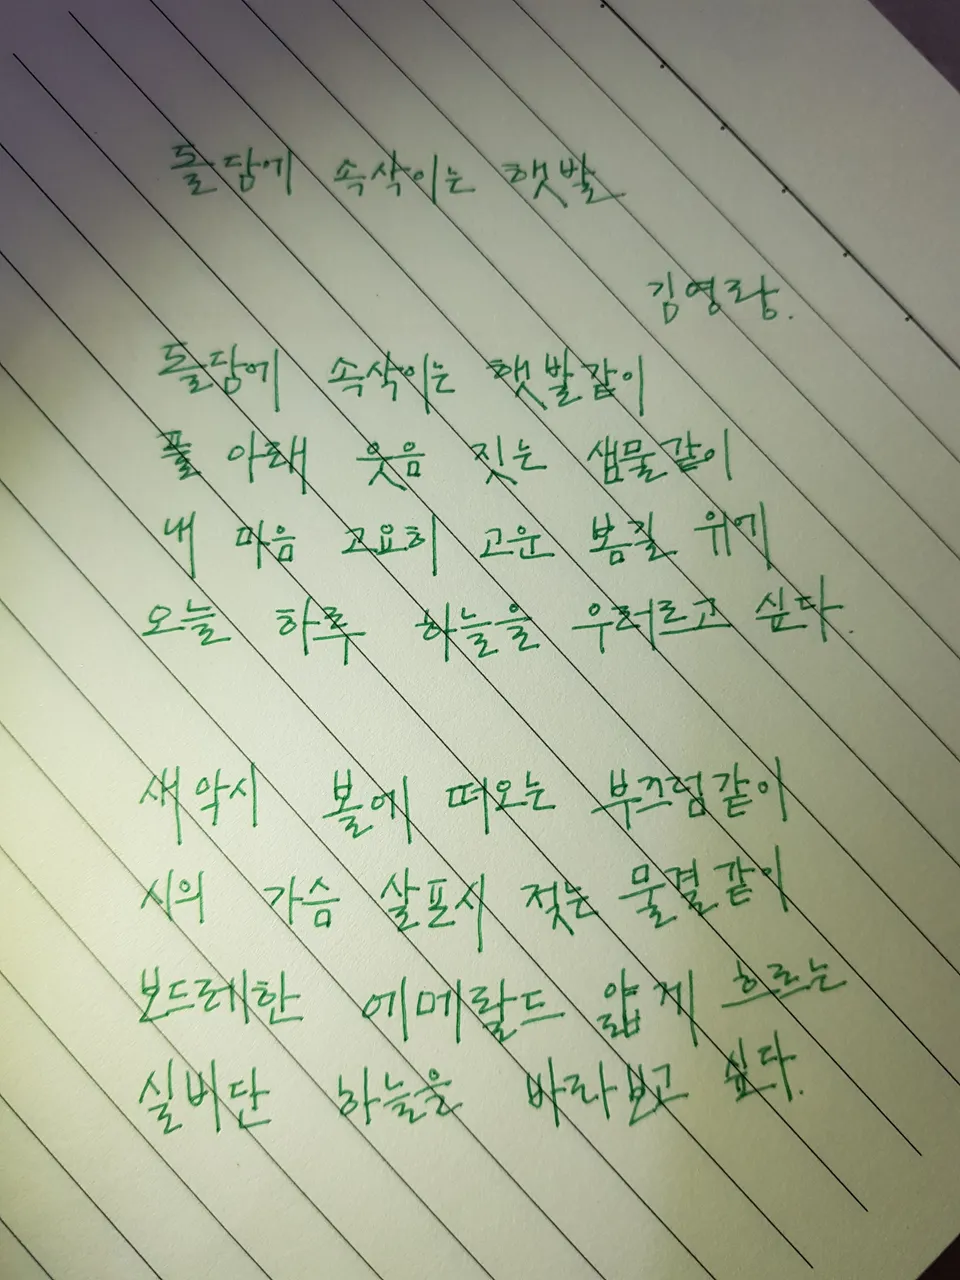 돌담에 속삭이는 햇발
김영랑.
돌담에 속삭이는 햇발같이
풀 아래 웃음 짓는 샘물같이
내 마음 고요히 고운 봄길 위에
오늘 하루 하늘을 우러르고 싶다.
새악시 볼에 떠오는 부끄럼같이
시의 가슴 살포시 젖는 물결같이
보드레한 에메랄드 얇게 흐르는
실비단 하늘을 바라보고 싶다.